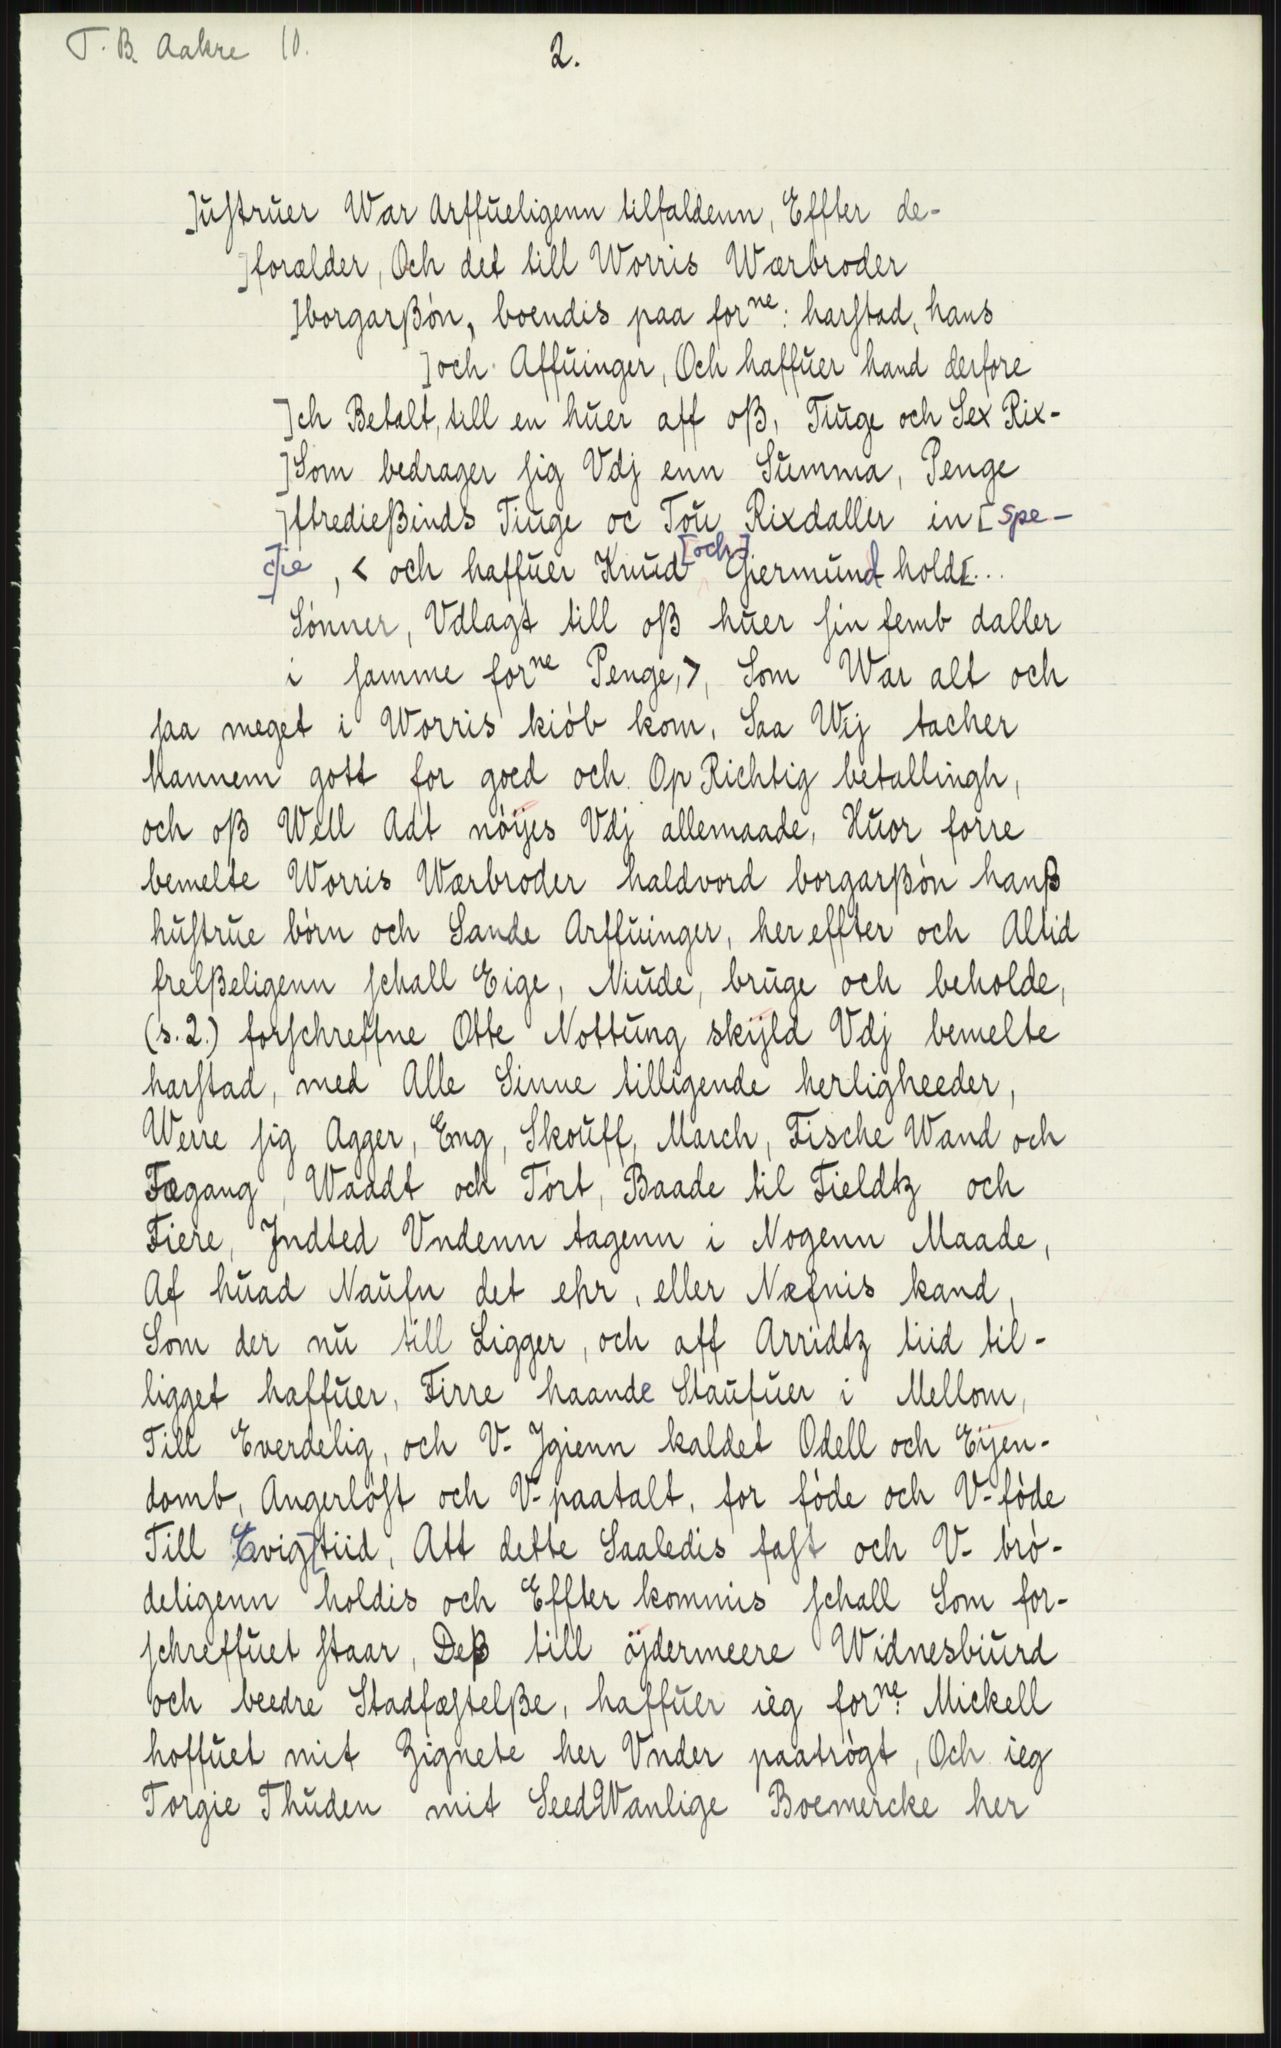 T. B. Aakre 10.
2.
]ustruer War Arffueligenn tilfaldenn, Effter de-
]forælder, Och det till Worris Wærbroder
]borgarßøn, boendis paa forne: harstad, hans
]och Affuinger, Och haffuer hand derfore
]ch Betalt, till en huer aff oß, Tiuge och Sex Rix-
]Som bedrager sig Vdj enn Summa, Penge
]ftredießinds Tiuge oc Tou Rixdaller in [spe-
c]ie, < och haffuer Knud [och] Giermund hold[...
Sønner, Vdlagt till oß huer sin femb daller
i samme forne Penge, >, Som War alt och
saa meget i Worris kiøb kom, Saa Wij tacher
hannem gott for goed och Op Richtig betallingh,
och oß Well Adt nøijes Vdj allemaade, Huor forre
bemelte Worris Wærbroder haldvord borgarßøn hanß
hustrue børn och Sande Arffuinger, her effter och Altid
frelßeligenn schall Eige, Niude, bruge och beholde,
(s. 2.) forschreffne Otte Nottung skijld Vdj bemelte
harstad, med Alle Sinne tilligende herligheeder,
Werre sig Agger, Eng, Skouff, March, Fische Wand och
Fægang, Waadt och Tørt, Baade til Fieldtz och
Fiere, Jndted Vndenn tagenn i Nogenn Maade,
Af huad Naufn det ehr, eller Næfnis kand,
Som der nu till Ligger, och aff Arridtz tiid til-
ligget haffuer, Firre haande Staufuer i Mellom,
Till Everdelig, och V- Jgienn kaldet Odell och Eijen-
domb, Angerløst och V- paatalt, for føde och V- føde
Till Evig[tiid, Att dette Saaledis fast och V- brø-
deligenn holdis och Effter kommis schall Som for-
schreffuet staar, Deß till ÿdermeere Widnesbiurd
och beedre Stadfæstelße, haffuer ieg forne: Mickell
hoffuet mit Zignete her Vnder paatrøgt, Och ieg
Torgie Thuden mit SeedWanlige Boemercke her